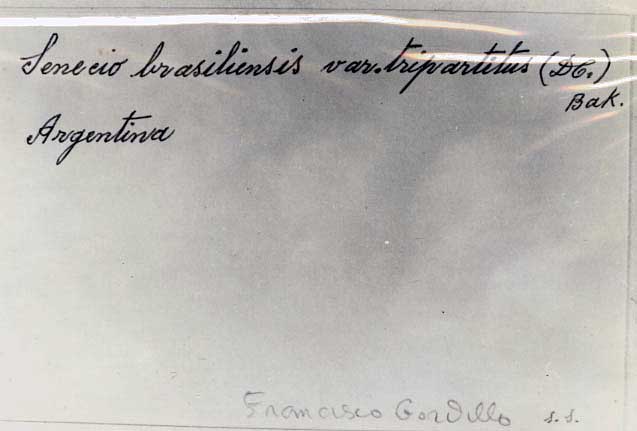 Senecio brasiliensis var. tripartitus (DC.)
Bak.
Argentina
Francisco Gordillo s.s.